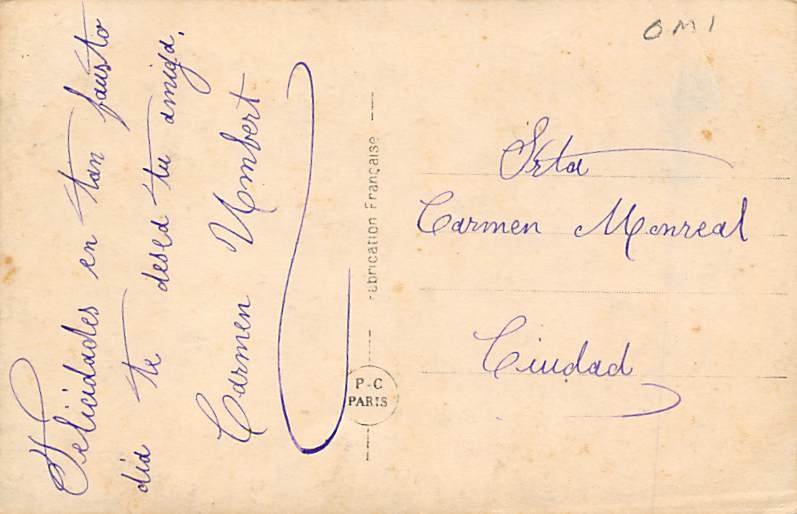 Felicidades en tan fausto
dia te desea tu amiga.
Carmen Umbert
Fabrication Française
P-C
PARIS
OM1
Srta
Carmen Monreal
Ciudad